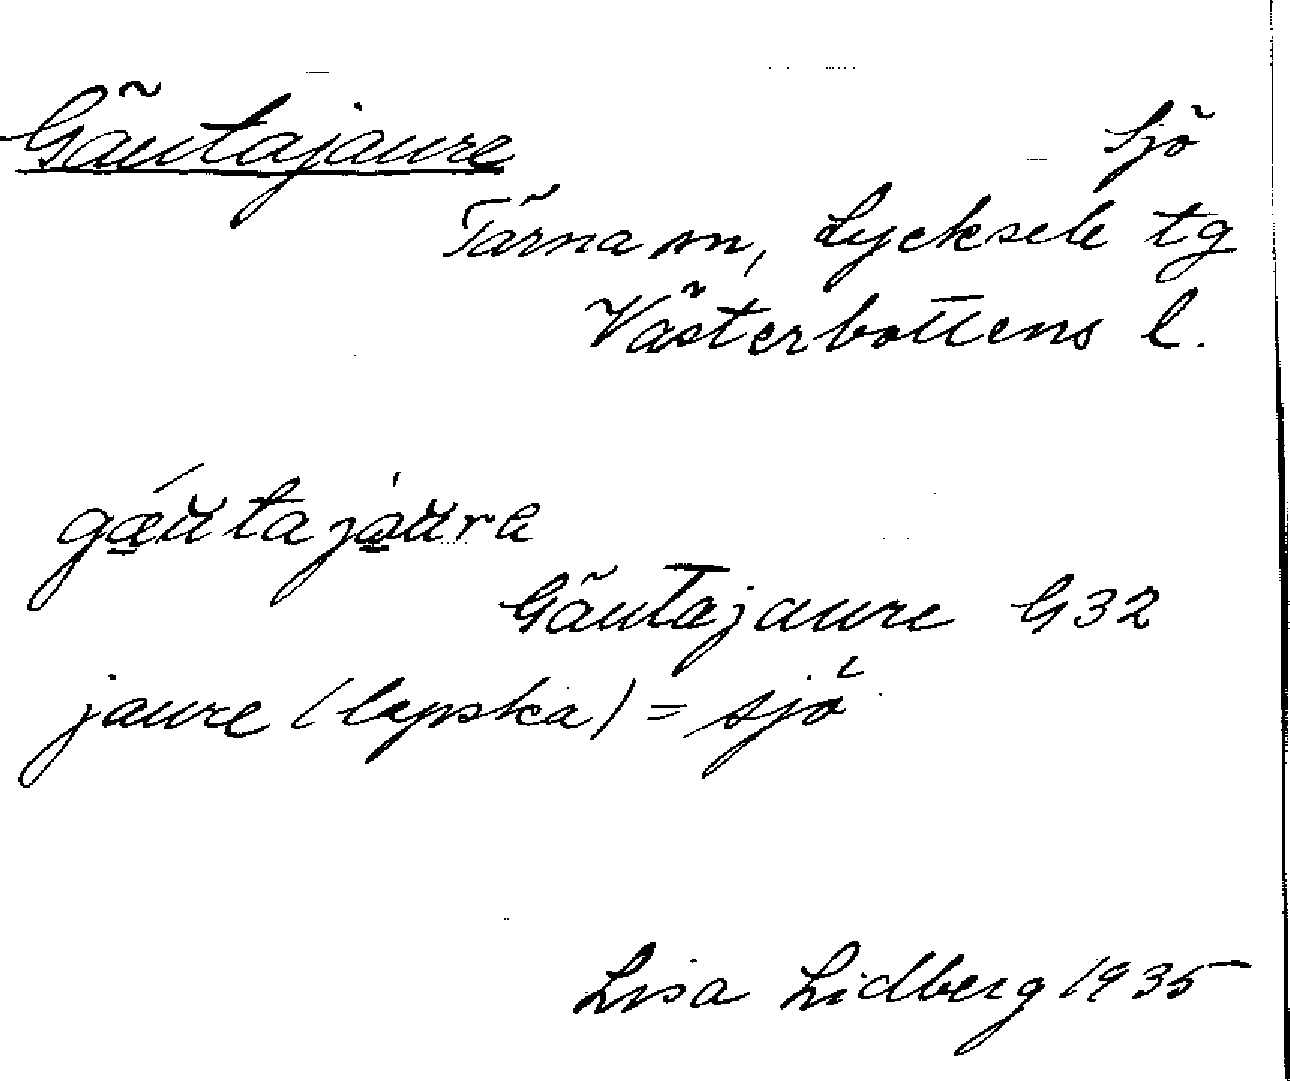 Gäutajaure
Sjö
Tärna sn, Lycksele tg
Västerbottens l.
gǽ̠ŭtaja̠̍ŭrɐ
Gäutajaure G32
jaure (lapska) = sjö
Lisa Lidberg 1935